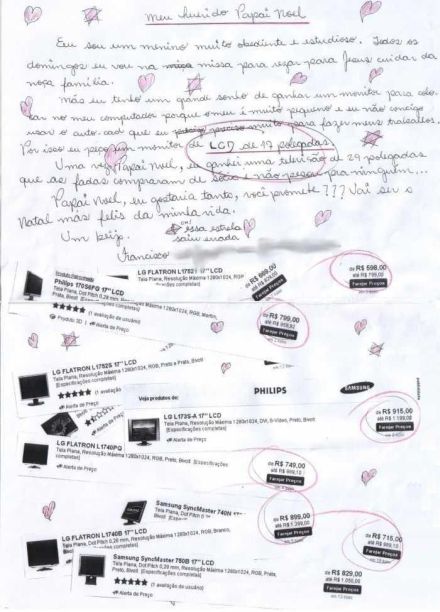 Meu kerido Papai Noel
Eu sou um menino muito obediente e estudioso. Todos os
domingos eu vou na missa para rezar para Jesus cuidar da
noça família.
mas eu tenho um grande sonho de ganhar um monitor para colo-
car no meu computador porque o meu é muito pequeno e eu não consigo
usar o auto-cad que eu preciso muito para fazer meus trabalhos.
Por isso eu peço um monitor de LCD de 17 polegadas.
Uma vez Papai Noel, eu ganhei uma televisão de 29 polegadas
que as fadas compraram de sócia e não pesou pra ninguém...
Papai Noel, eu gostaria tanto, você promete??? Vai ser o
Natal mas felis da minha vida.
OH!
Um beijo. essa estrela
saiu errada
Francisco
LG FLATRON L1752T 17" LCD
Tela Plana, Resolução Máxima 1280x1024, RGB
de R$ 669,00
de R$ 598,00
até R$ 799,00
Farejar Preços
Philips 170S6FG 17" LCD
Tela Plana, Dot Pitch 0,28 mm, Resolução Máxima 1280x1024, RGB, Marfim,
Prata, Bivolt [Especificações completas]
(1 avaliação de usuário)
Produto 3D | Alerta de Preço
de R$ 799,00
Farejar Preços
LG FLATRON L1752S 17" LCD
Tela Plana, Resolução Máxima 1280x1024, RGB, Preto e Prata, Bivolt
[Especificações completas]
(1 avaliação
Alerta de Preço
Veja produtos de:
PHILIPS
SAMSUNG
LG L173S-A 17" LCD
Tela Plana, Resolução Máxima 1280x1024, DVI, S-Video, Preto, Bivolt
[Especificações completas]
Alerta de Preço
de R$ 915,00
até R$ 1.199,00
Farejar Preços
LG FLATRON L1740PQ
Tela Plana, Resolução Máxima 1280x1024, RGB, Preto, Bivolt [Especificações
completas]
Alerta de Preço
de R$ 749,00
Farejar Preços
Samsung SyncMaster 740N 17"
Tela Plana, Dot Pitch
Prata, Bivolt
de R$ 899,00
até R$ 1.399,00
Farejar Preços
LG FLATRON L1740B 17" LCD
Tela Plana, Dot Pitch 0,26 mm, Resolução Máxima 1280x1024, RGB, Branco,
de R$ 715,00
Farejar Preços
Samsung SyncMaster 750B 17" LCD
Tela Plana, Dot Pitch 0,26 mm, Resolução Máxima 1280x1024, RGB, Prata,
Preto, Bivolt [Especificações completas]
(1 avaliação de usuário)
Alerta de Preço
de R$ 829,00
Farejar Preços